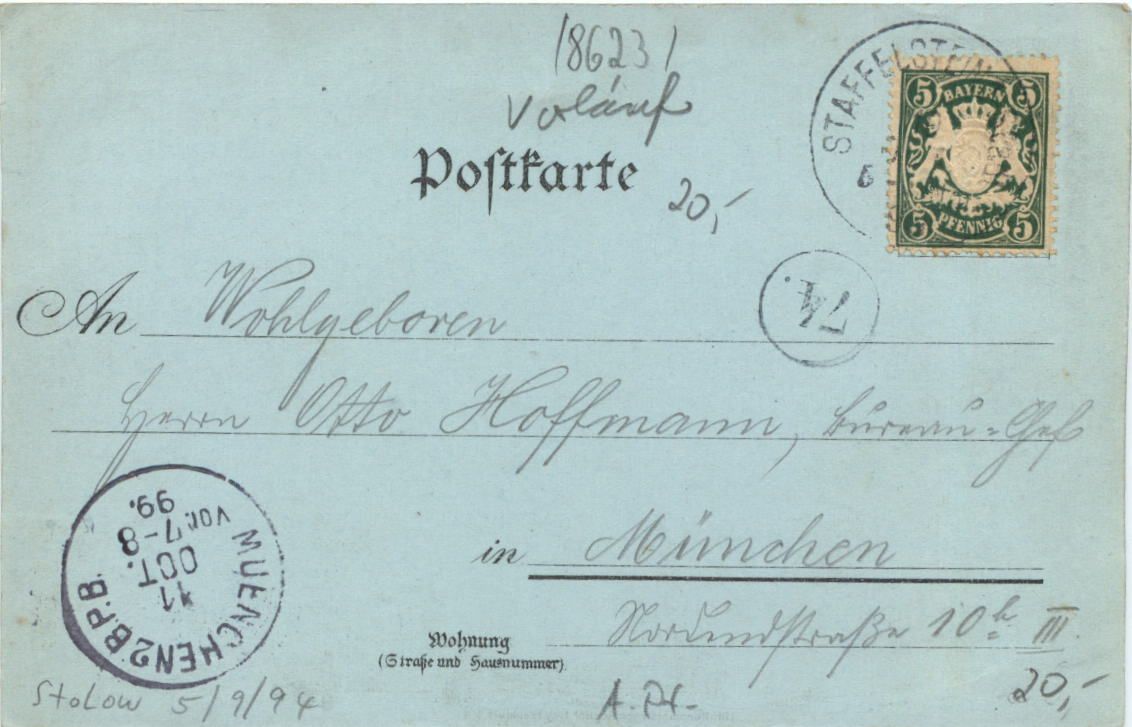 /8623/
Voläuf
STAFFELSTEIN
6
5 BAYERN 5
5 PFENNIG 5
Postkarte
20,-
74.
An Wohlgeboren
Herrn Otto Hoffmann, Bureau-Chef
in München
Wohnung
(Straße und Hausnummer)
10 III.
MUENCHEN 2 B.P.B.
11
OCT.
Vor. 7-8
99.
Stolow 5/9/94
A. Pr.
20,-